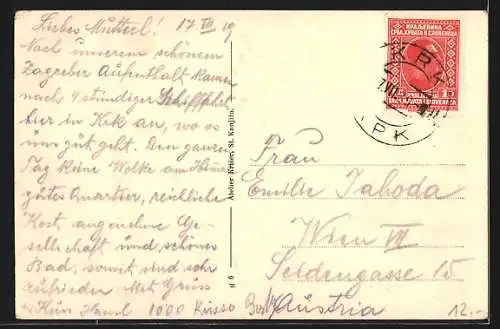 Liebes Mutterl! 17. VII 29
Nach unserem schönen
Zagreber Aufenthalt kamen
nach 4 stündiger Schiffahrt
hier in Krk an, wo es
uns gut geht. Den ganzen
Tag keine Wolke am
gutes Quartier, reichliche
Kost, angenehme Ge-
sellschaft und schönes
Bad, somit sind sehr
zufrieden. Mit Gruss
u Kuss Hansl 1000 Küsse
Atelier Krüerr, St. Kanjiža
st 6
КРАЉЕВИНА
СРБА, ХРВАТА И СЛОВЕНАЦА
15
KRALJEVINA
SRBA, HRVATA I SLOVENACA
KRK
Frau
Emilie Jahoda
Wien VII
Seidengasse 15
Austria
12.-